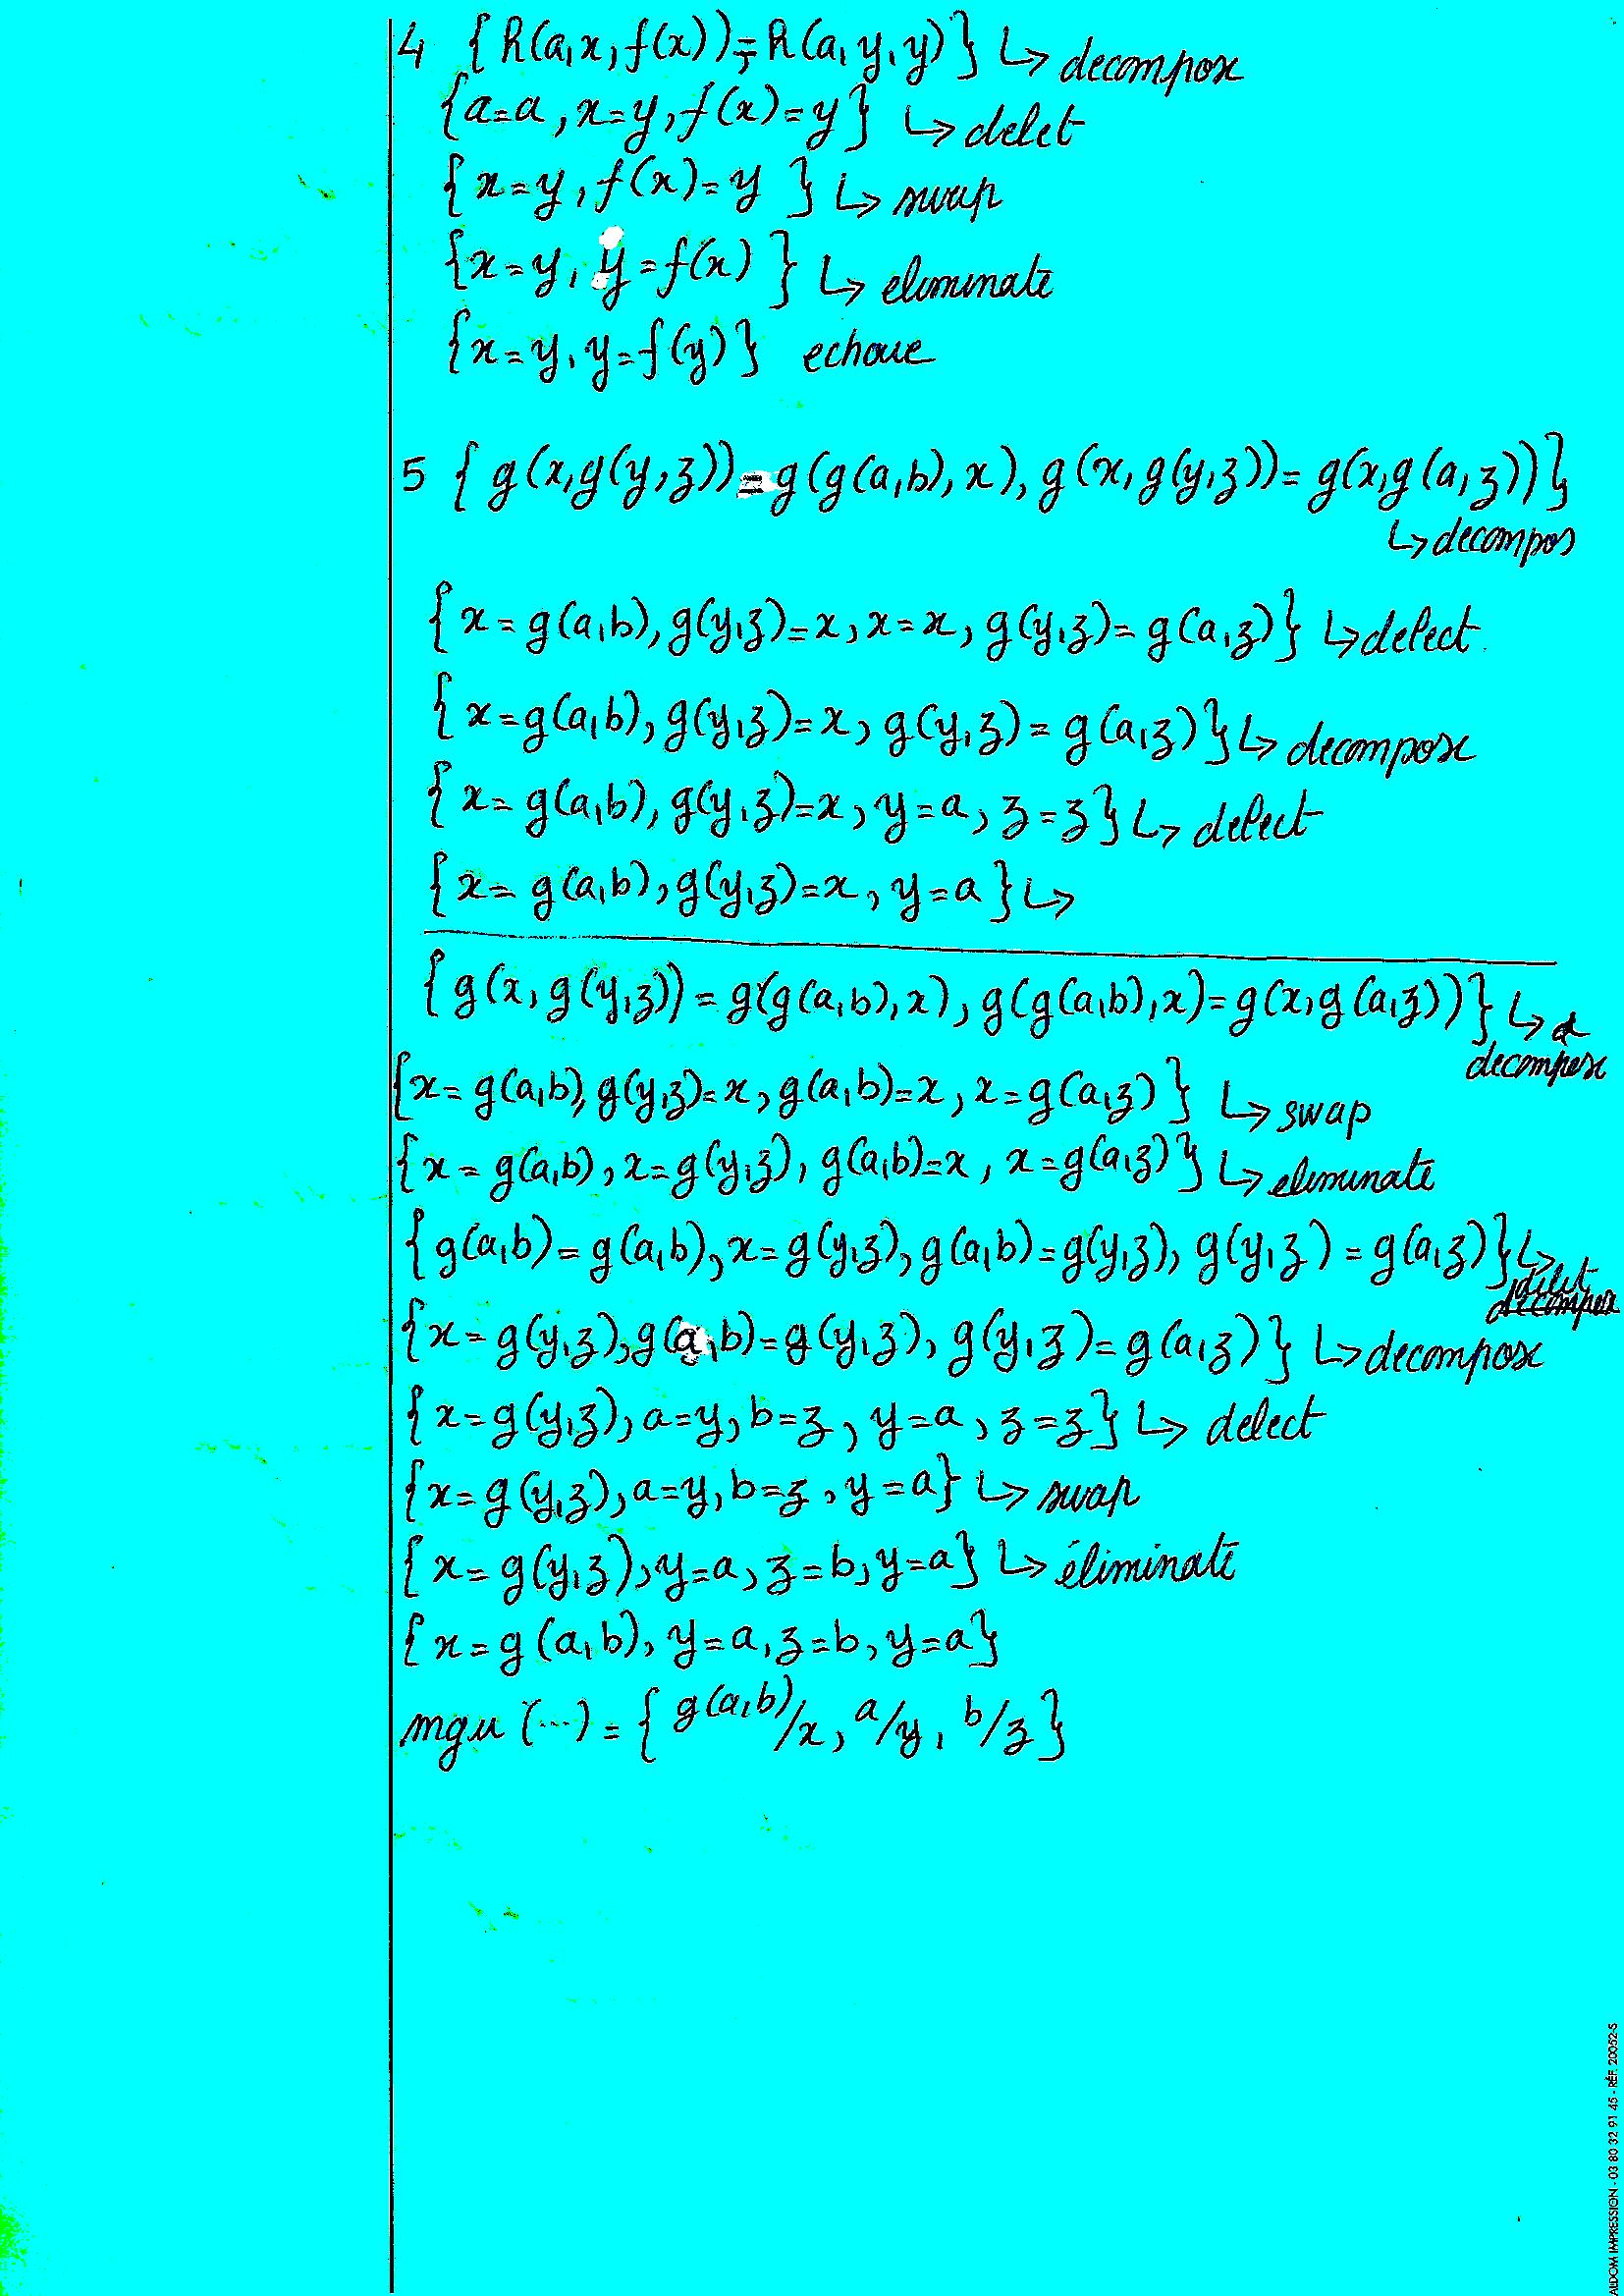 4 {R(a,x,f(x))=R(a,y,y)} ↳ decompose
{a=a,x=y,f(x)=y} ↳ delet
{x=y,f(x)=y} ↳ swap
{x=y,y=f(x)} ↳ eliminate
{x=y,y=f(y)} echoue
5 {g(x,g(y,z))=g(g(a,b),x),g(x,g(y,z))=g(x,g(a,z))}
↳ decompos
{x=g(a,b),g(y,z)=x,x=x,g(y,z)=g(a,z)} ↳ delect
{x=g(a,b),g(y,z)=x,g(y,z)=g(a,z)} ↳ decompose
{x=g(a,b),g(y,z)=x,y=a,z=z} ↳ delect
{x=g(a,b),g(y,z)=x,y=a} ↳
{g(x,g(y,z))=g(g(a,b),x),g(g(a,b),x)=g(x,g(a,z))} ↳ d
decompose
{x=g(a,b),g(y,z)=x,g(a,b)=x,x=g(a,z)} ↳ swap
{x=g(a,b),x=g(y,z),g(a,b)=x,x=g(a,z)} ↳ eliminate
{g(a,b)=g(a,b),x=g(y,z),g(a,b)=g(y,z),g(y,z)=g(a,z)} ↳
delet
decompose
{x=g(y,z),g(a,b)=g(y,z),g(y,z)=g(a,z)} ↳ decompose
{x=g(y,z),a=y,b=z,y=a,z=z} ↳ delect
{x=g(y,z),a=y,b=z,y=a} ↳ swap
{x=g(y,z),y=a,z=b,y=a} ↳ éliminate
{x=g(a,b),y=a,z=b,y=a}
mgu(...)={g(a,b)/x,a/y,b/z}
ALDOM IMPRESSION - 03 80 32 91 45 - RÉF. 20052-S